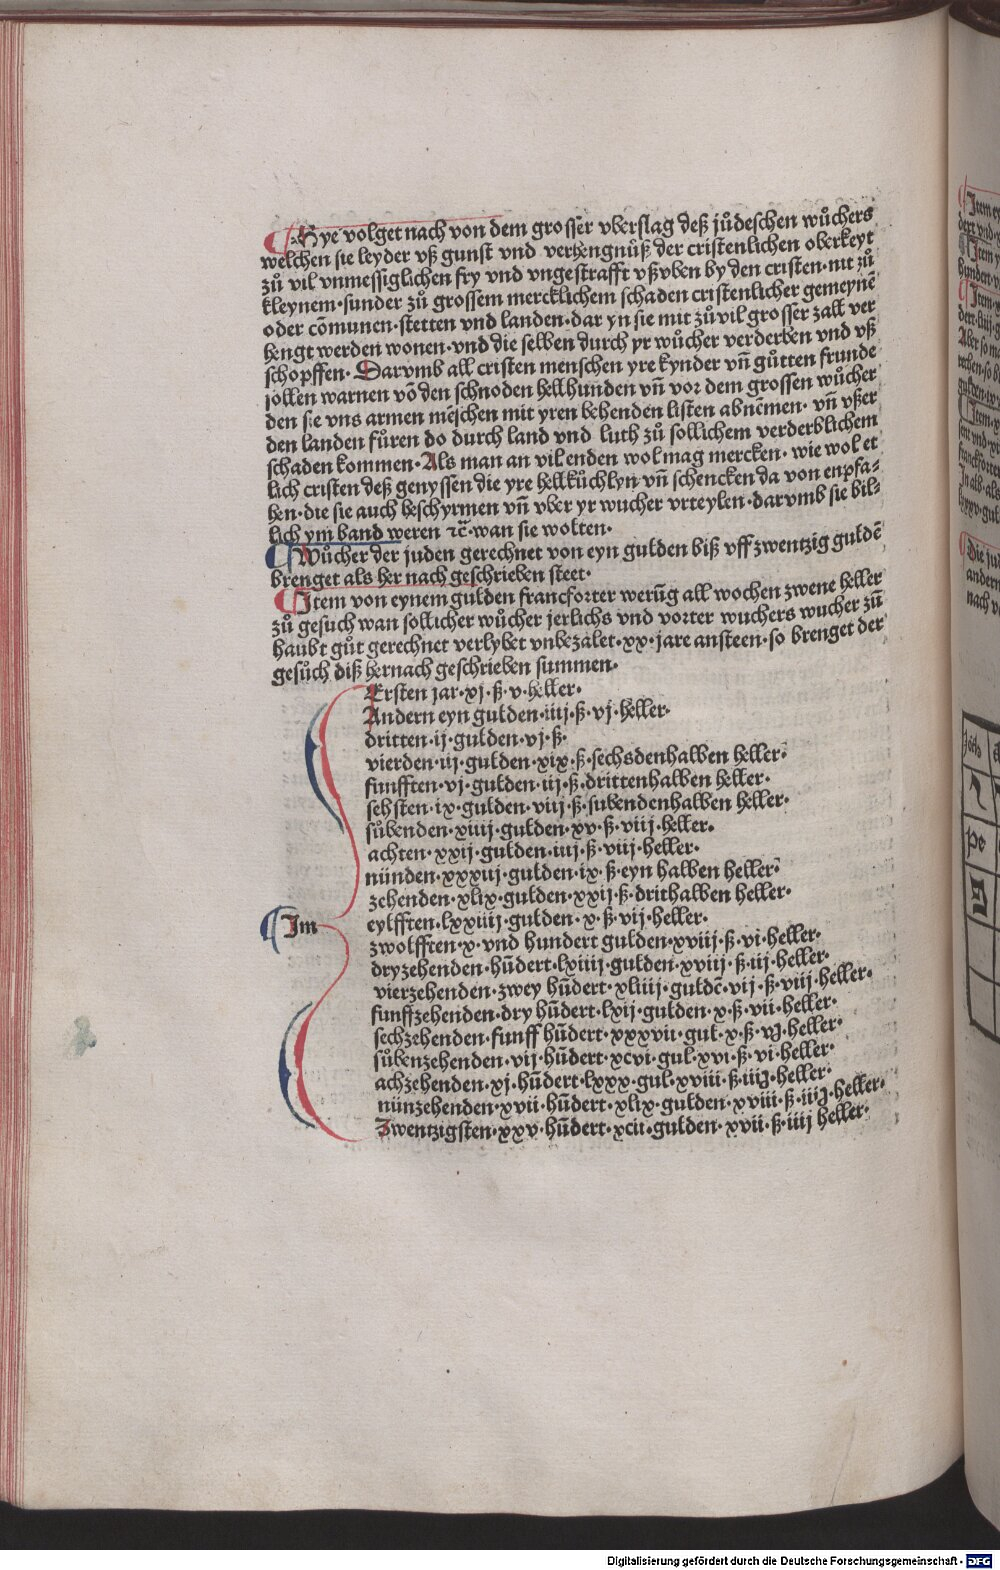 ¶ Hye volget nach von dem grosser vberslag deß jůdeschen wůchers
welchen sie leyder vß gunst vnd verhengnůß der cristenlichen oberkeyt
zů vil vnmessiglichen fry vnd vngestrafft vßvben by den cristen· nit zů
kleynem· sunder zů grossem mercklichem schaden cristenlicher gemeynē
oder cōmunen· stetten vnd landen· dar yn sie mit zů vil grosser zall ver
hengt werden wonen· vnd die selben durch yr wůcher verderben vnd vß
schopffen· Darvmb all cristen menschen yre kynder vñ gůtten frunde
sollen warnen vō den schnoden hellhunden vñ vor dem grossen wůcher
den sie vns armen mēschen mit yren behenden listen abnēmen· vñ vßer
den landen fůren do durch land vnd luth zů sollichem verderblichem
schaden kommen· Als man an vil enden wol mag mercken· wie wol et
lich cristen deß genyssen die yre hellkůchlyn vñ schencken da von enpfa⸗
hen· die sie auch beschyrmen vñ vber yr wucher vrteylen· darvmb sie bil⸗
lich ym band weren ⁊c̄· wan sie wolten·
¶ Wůcher der juden gerechnet von eyn gulden biß vff zwentzig guldē
brenget als her nach geschrieben steet·
¶ Item von eynem gulden francforter werūg all wochen zwene heller
zů gesuch wan sollicher wůcher jerlichs vnd vorter wuchers wucher zū
haubt gůt gerechnet verlybet vnbezalet· xx· jare ansteen· so brenget der
gesůch diß hernach geschrieben summen·
Ersten jar· xj· ß· v· heller·
Andern eyn gulden· iiij· ß· vj· heller·
dritten· ij· gulden· vj· ß·
vierden· iij· gulden· xix· ß· sechsdenhalben heller·
funfften· vj· gulden· iij· ß· drittenhalben heller·
sehsten· ix· gulden· viij· ß· subendenhalben heller·
sůbenden· xiiij· gulden· xv· ß· viij· heller·
achten· xxij· gulden· iiij· ß· viij· heller·
nünden· xxxiij· gulden· ix· ß· eyn halben heller·
zehenden· xlix· gulden· xxij· ß· drithalben heller·
¶ Im eylfften· lxxiiij· gulden· x· ß· vij· heller·
zwolfften· x· vnd hundert gulden· xviij· ß· vi· heller·
dryzehenden· hūdert· lxiiij· gulden· xviij· ß· iij· heller·
vierzehenden· zwey hūdert· xliiij· guldē· vij· ß· viij· heller·
funffzehenden· dry hūdert· lxij· gulden· x· ß· vii· heller·
sechzehenden· funff hūdert· xxxvii· gul· x· ß· vj· heller·
sůbenzehenden· vij· hūdert· xcvi· gul· xvi· ß· vi· heller·
achzehenden· xj· hūdert· lxxx· gul· xviii· ß· iiij· heller·
nünzehenden· xvii· hūdert· xlix· gulden· xviii· ß· iiij· heller·
Zwentzigsten· xxv· hūdert· xcii· gulden· xvii· ß· iiij heller·
Digitalisierung gefördert durch die Deutsche Forschungsgemeinschaft - DFG